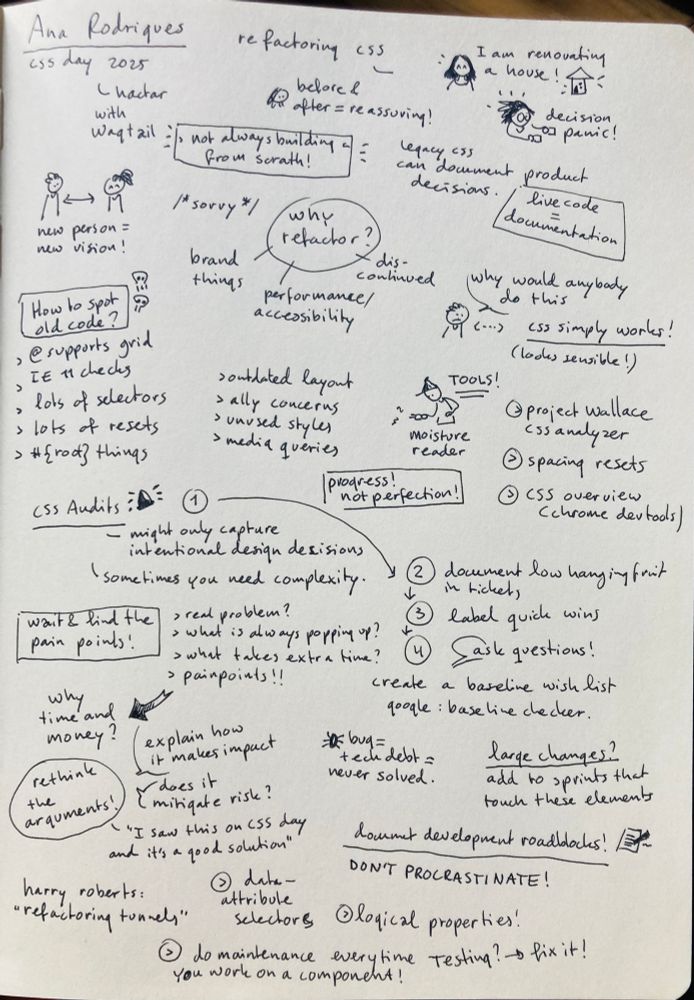 Ana Rodrigues
css day 2025
refactoring css
I am renovating
a house!
hactar
with
wagtail
before &
after = reassuring!
decision
panic!
> not always building
from scrath!
legacy css
can document product
decisions.
live code
=
documentation
new person =
new vision!
/*sorry*/
why
refactor?
brand
things
performance/
accessibility
dis-
continued
why would anybody
do this
css simply works!
(looks sensible!)
How to spot
old code?
> @supports grid
> IE 11 checks
> lots of selectors
> lots of resets
> #{root} things
> outdated layout
> a11y concerns
> unused styles
> media queries
TOOLS!
moisture
reader
> project Wallace
css analyzer
> spacing resets
> CSS overview
(chrome devtools)
progress!
not perfection!
css Audits
1
might only capture
intentional design desisions
sometimes you need complexity.
2 document low hanging fruit
in tickets
3 label quick wins
4 ask questions!
create a baseline wish list
google: baseline checker.
wait & find the
pain points!
> real problem?
> what is always popping up?
> what takes extra time?
> painpoints!!
why
time and
money?
explain how
it makes impact
does it
mitigate risk?
rethink
the
arguments!
"I saw this on css day
and it's a good solution"
bug =
tech debt =
never solved.
large changes?
add to sprints that
touch these elements
documet development roadblocks!
DON'T PROCRASTINATE!
harry roberts:
"refactoring tunnels"
> data-
attribute
selectors
> logical properties!
> do maintenance everytime
you work on a component!
Testing? → fix it!